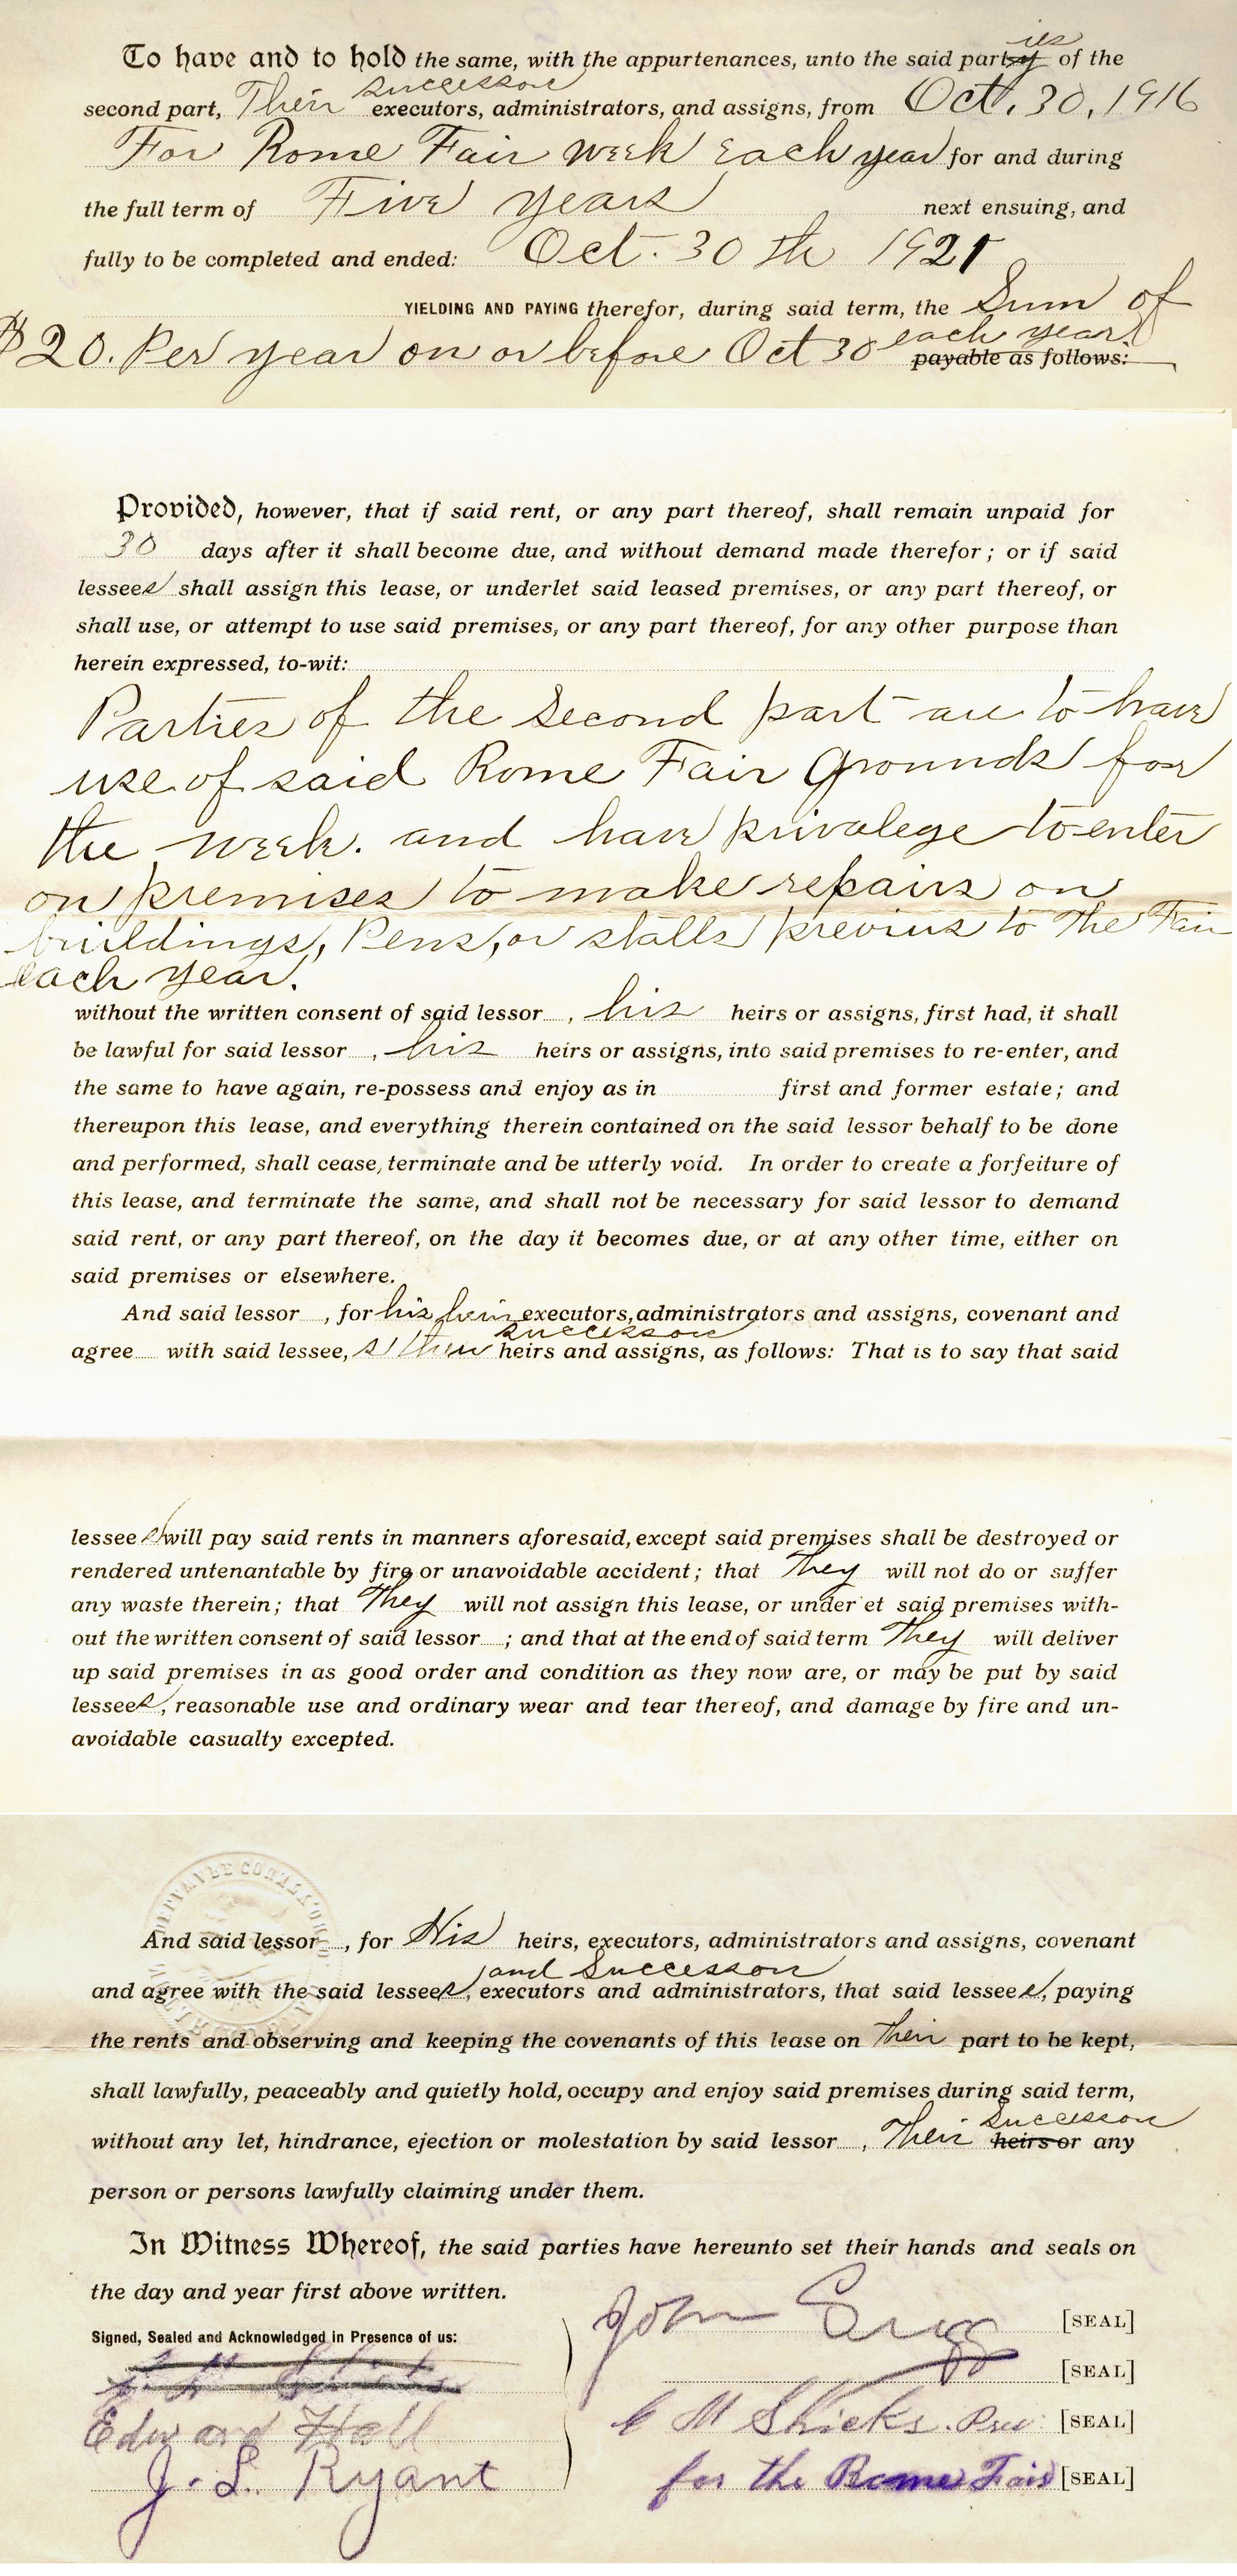 To have and to hold the same, with the appurtenances, unto the said parties of the
second part, Their successors executors, administrators, and assigns, from Oct. 30, 1916
For Rome Fair week Each year for and during
the full term of Five years next ensuing, and
fully to be completed and ended: Oct. 30th 1921
YIELDING AND PAYING therefor, during said term, the Sum of
$20. Per year on or before Oct 30 each year. payable as follows:
Provided, however, that if said rent, or any part thereof, shall remain unpaid for
30 days after it shall become due, and without demand made therefor; or if said
lessees shall assign this lease, or underlet said leased premises, or any part thereof, or
shall use, or attempt to use said premises, or any part thereof, for any other purpose than
herein expressed, to-wit:
Parties of the Second part are to have
use of said Rome Fair Grounds for
the week. and have privalege to enter
on premises to make repairs on
buildings, Pens, or stalls previus to The Fair
each year.
without the written consent of said lessor, his heirs or assigns, first had, it shall
be lawful for said lessor, his heirs or assigns, into said premises to re-enter, and
the same to have again, re-possess and enjoy as in first and former estate; and
thereupon this lease, and everything therein contained on the said lessor behalf to be done
and performed, shall cease, terminate and be utterly void. In order to create a forfeiture of
this lease, and terminate the same, and shall not be necessary for said lessor to demand
said rent, or any part thereof, on the day it becomes due, or at any other time, either on
said premises or elsewhere.
And said lessor, for his heirs executors, administrators and assigns, covenant and
agree with said lessee, s their successors heirs and assigns, as follows: That is to say that said
lessees will pay said rents in manners aforesaid, except said premises shall be destroyed or
rendered untenantable by fire or unavoidable accident; that They will not do or suffer
any waste therein; that They will not assign this lease, or under et said premises with-
out the written consent of said lessor; and that at the end of said term They will deliver
up said premises in as good order and condition as they now are, or may be put by said
lessees, reasonable use and ordinary wear and tear thereof, and damage by fire and un-
avoidable casualty excepted.
And said lessor, for His heirs, executors, administrators and assigns, covenant
and agree with the said lessees, and Successors executors and administrators, that said lessees, paying
the rents and observing and keeping the covenants of this lease on Their part to be kept,
shall lawfully, peaceably and quietly hold, occupy and enjoy said premises during said term,
without any let, hindrance, ejection or molestation by said lessor, Their Successors heirs or any
person or persons lawfully claiming under them.
In Witness Whereof, the said parties have hereunto set their hands and seals on
the day and year first above written.
Signed, Sealed and Acknowledged in Presence of us:
John [SEAL]
[SEAL]
Edward Hall
C M Shicks. Pres. [SEAL]
J. L. Ryant
for the Rome Fair [SEAL]